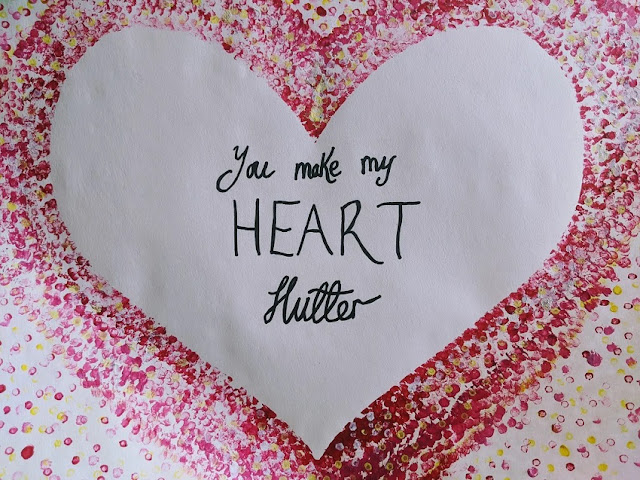 You make my
HEART
flutter